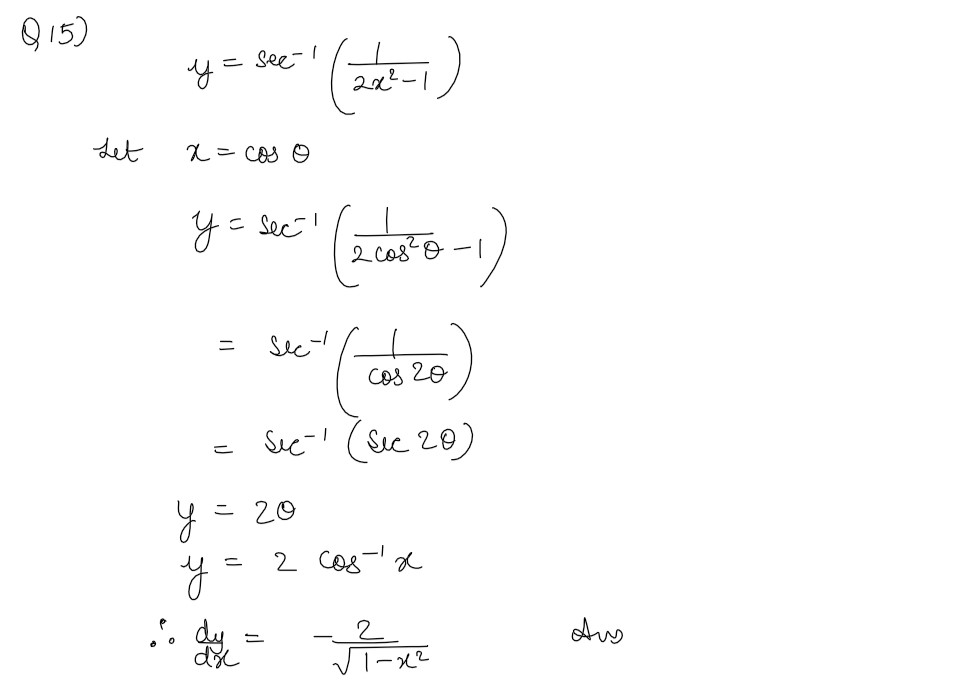 Q 15)
y = sec⁻¹ (1/(2x² − 1))
Let x = cos θ
y = sec⁻¹ (1/(2 cos² θ − 1))
= sec⁻¹ (1/(cos 2θ))
= sec⁻¹ (sec 2θ)
y = 2θ
y = 2 cos⁻¹ x
∴ dy/dx = − 2/√(1 − x²) Ans